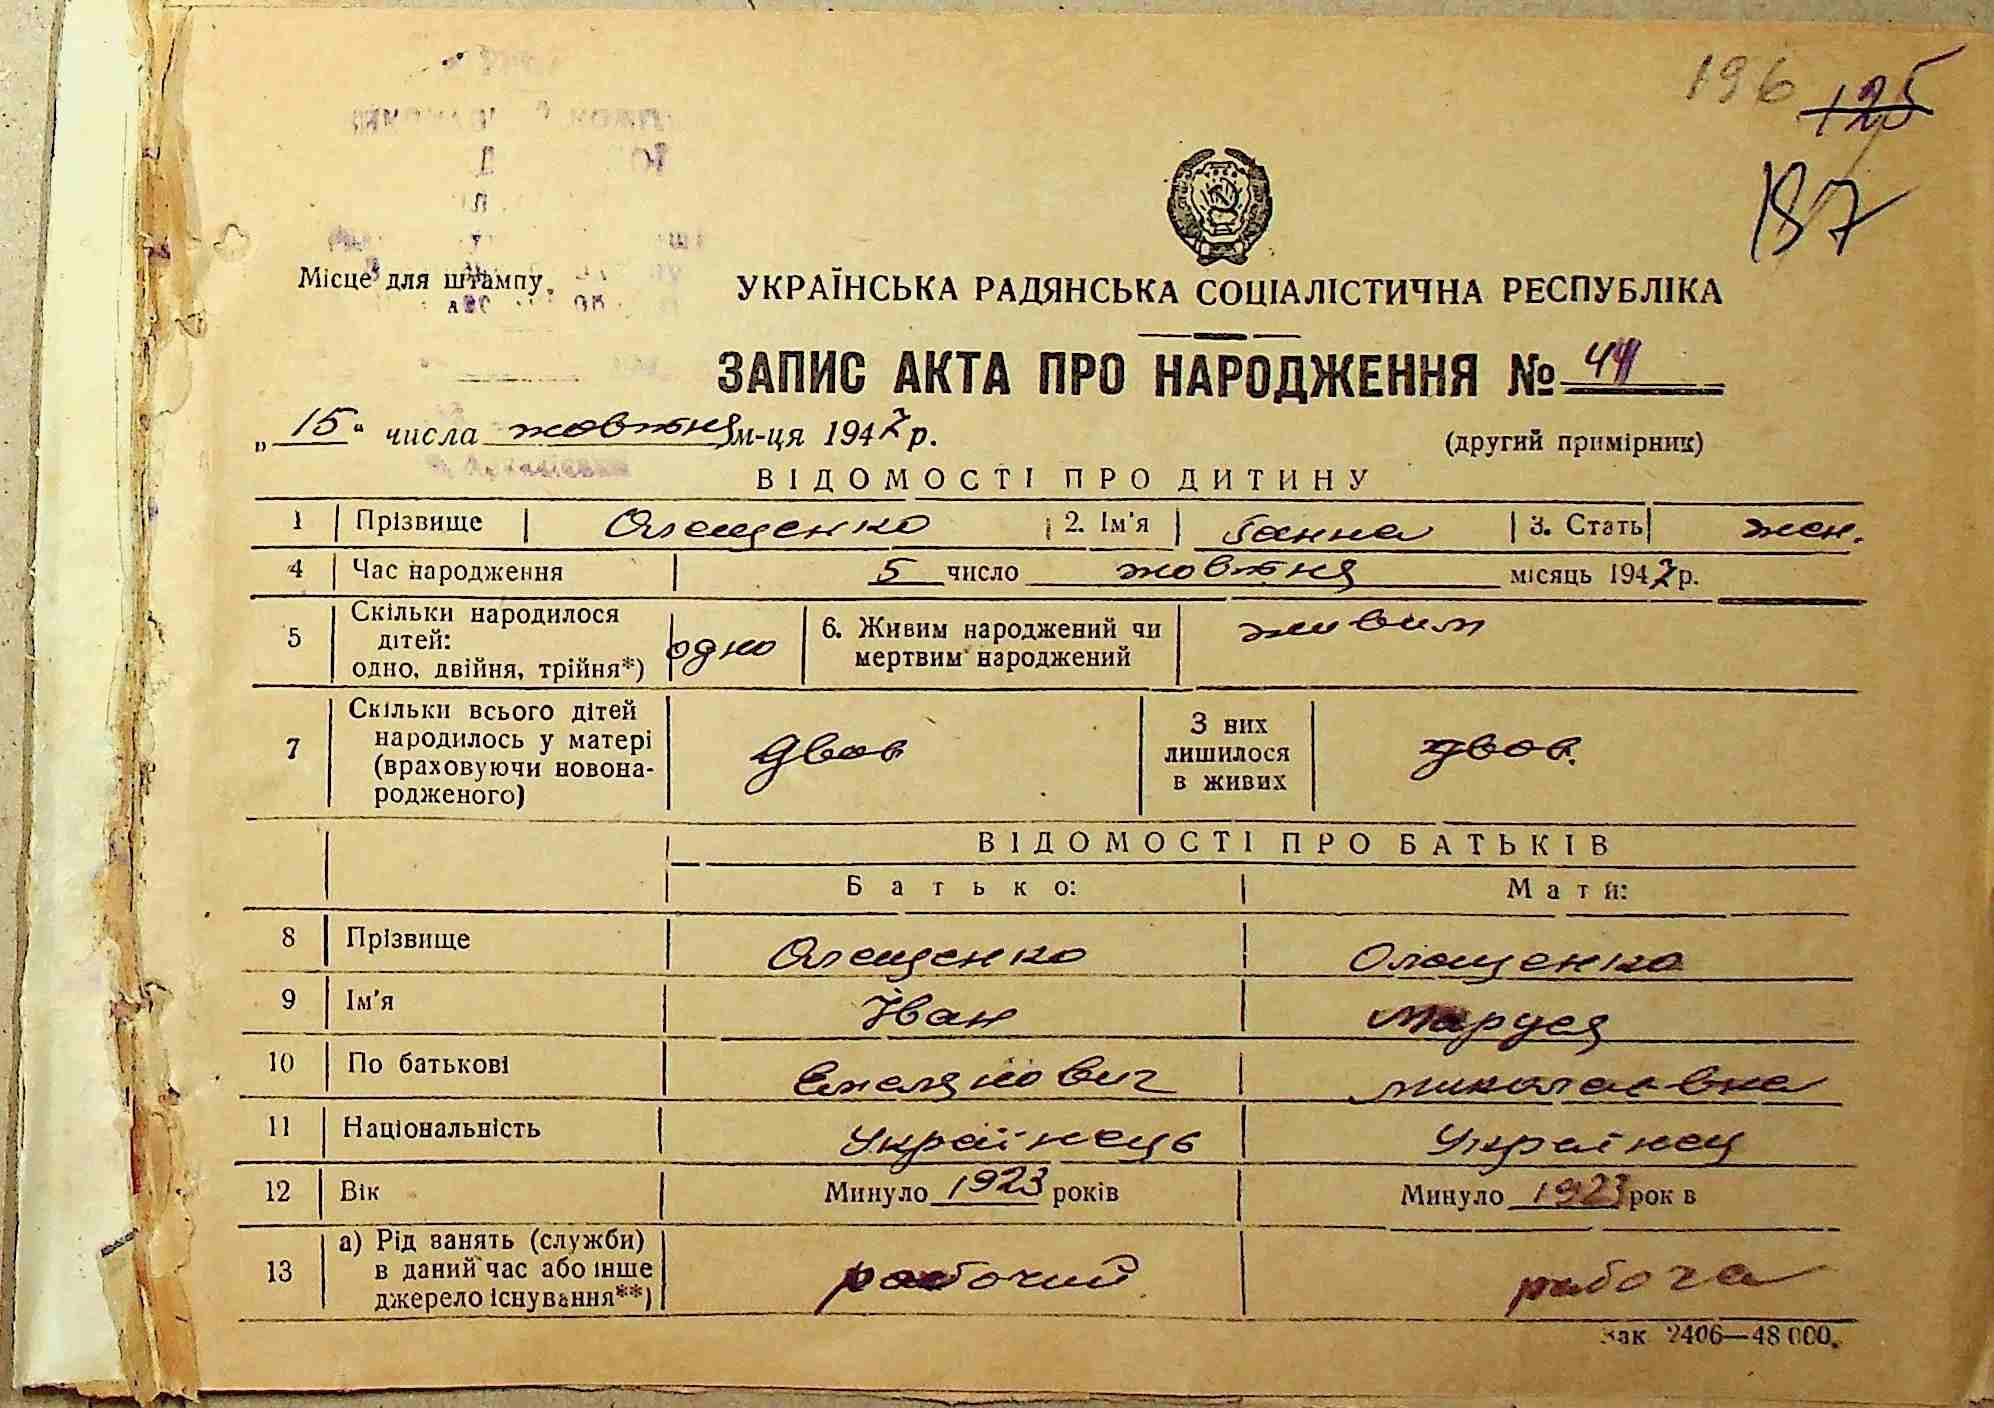 196 125
187
Місце для штампу
УКРАЇНСЬКА РАДЯНСЬКА СОЦІАЛІСТИЧНА РЕСПУБЛІКА
ЗАПИС АКТА ПРО НАРОДЖЕННЯ № 44
„ 15 “ числа жовтня м-ця 1947 р. (другий примірник)
ВІДОМОСТІ ПРО ДИТИНУ
1 Прізвище Олещенко 2. Ім'я Ганна 3. Стать жен.
4 Час народження 5 число жовтня місяць 1947 р.
5 Скільки народилося дітей: одно, двійня, трійня*) одно 6. Живим народжений чи мертвим народжений живим
7 Скільки всього дітей народилось у матері (враховуючи новонародженого) двоє З них лишилося в живих двоє.
ВІДОМОСТІ ПРО БАТЬКІВ
Батько: Мати:
8 Прізвище Олещенко Олещенко
9 Ім'я Іван Маруся
10 По батькові Емелянович Миколаєвна
11 Національність Українець Українец
12 Вік Минуло 1923 років Минуло 1923 рок в
13 а) Рід занять (служби) в даний час або інше джерело існування**) рабочий рабоча
Зак 2406—48 000.